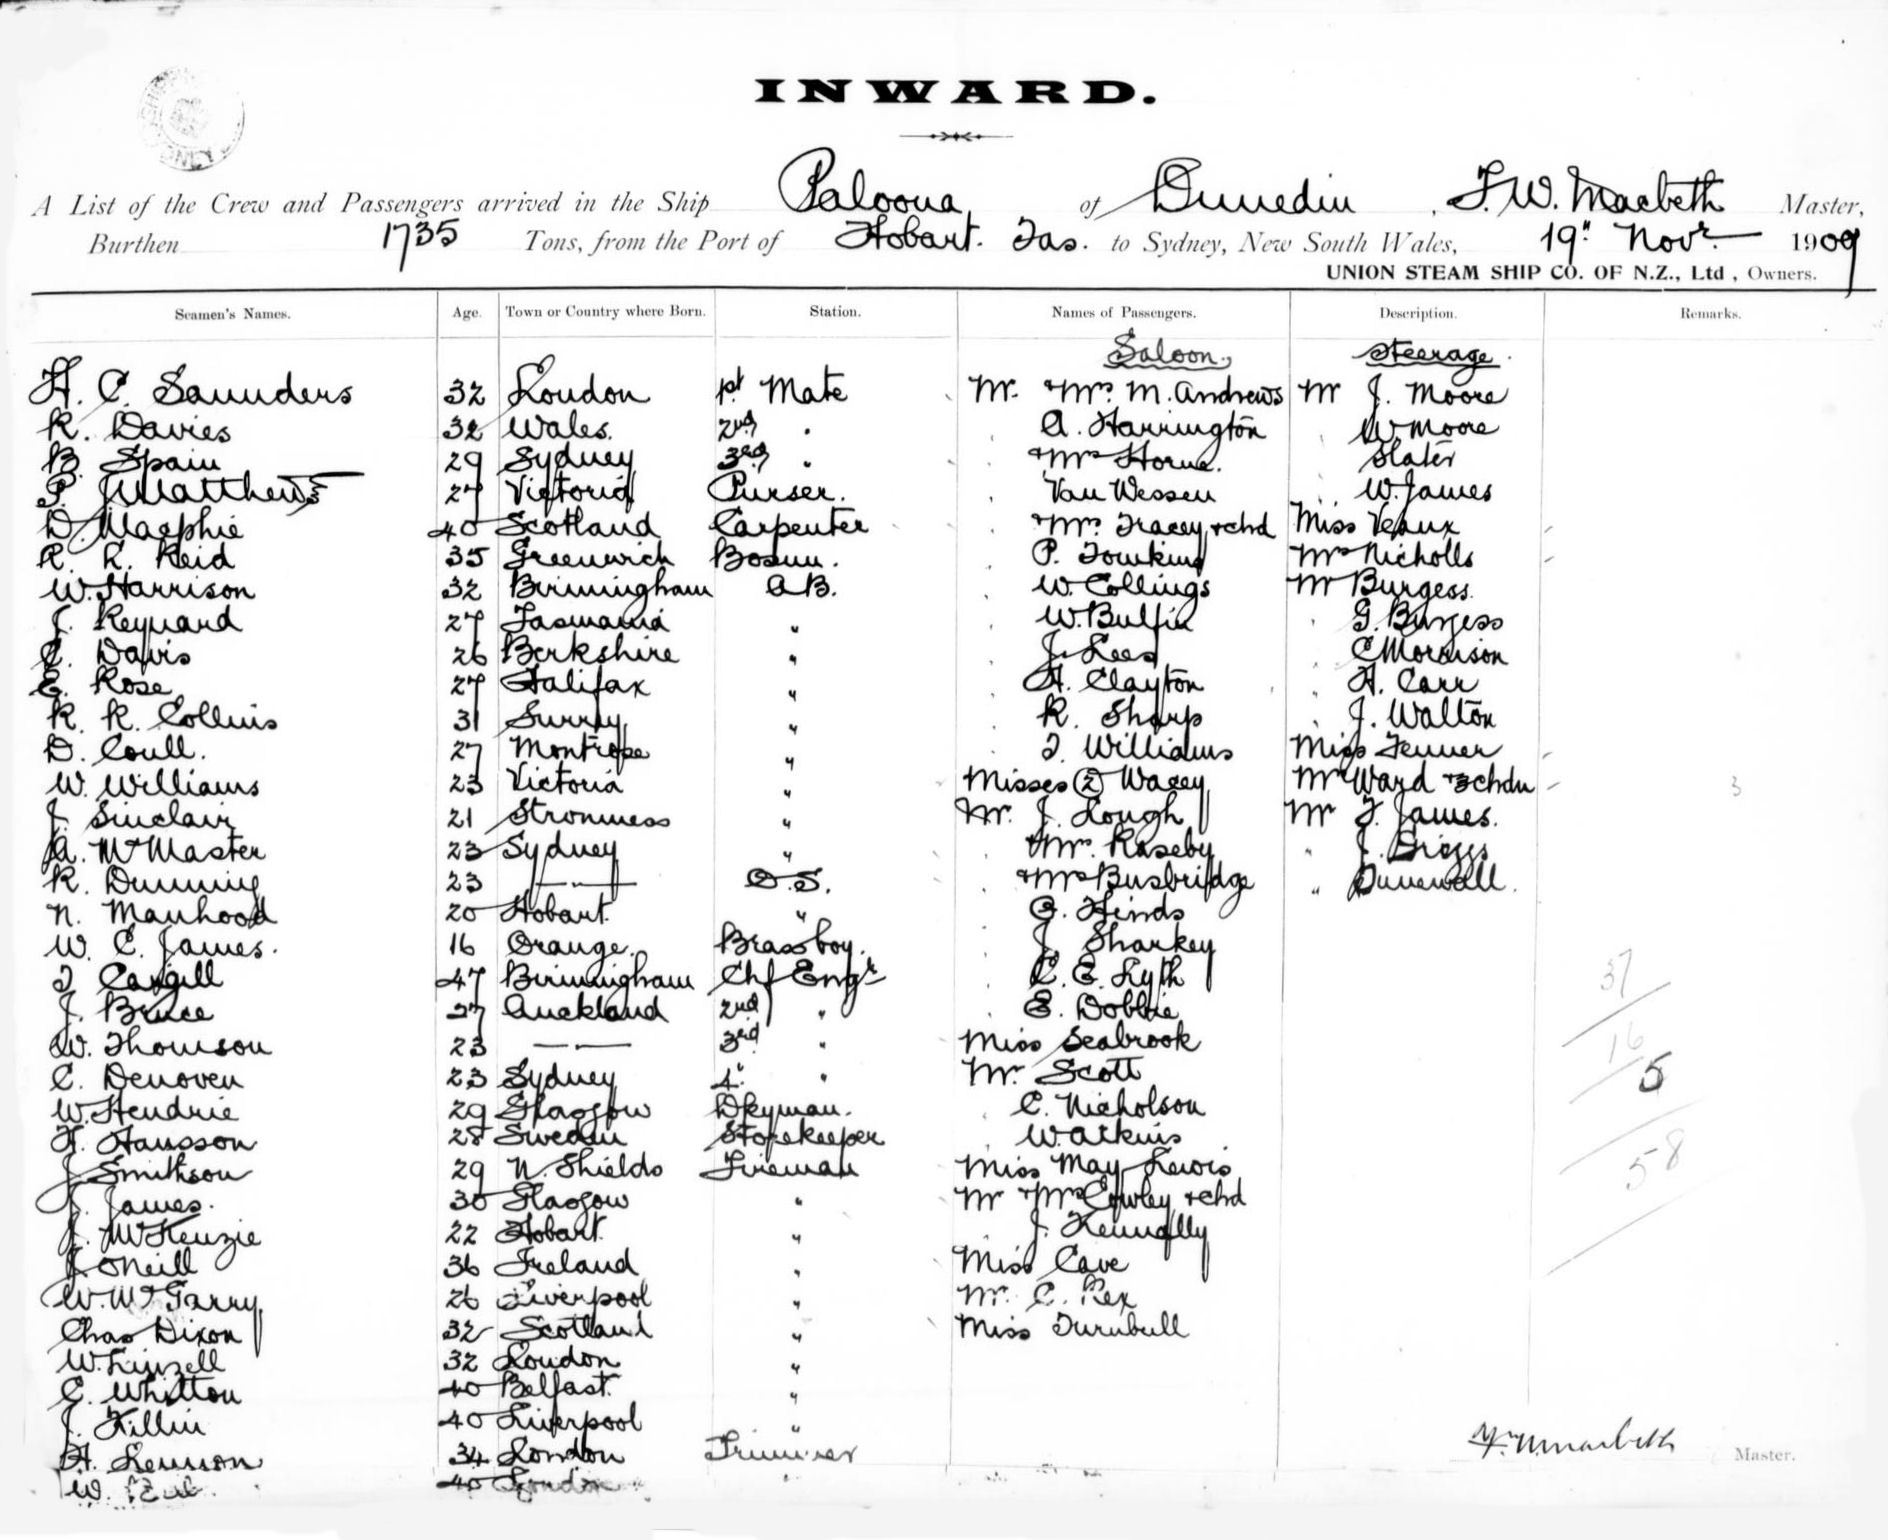 INWARD.
A List of the Crew and Passengers arrived in the Ship Paloona of Dunedin, T. W. Macbeth Master,
Burthen 1735 Tons, from the Port of Hobart. Tas. to Sydney, New South Wales, 19" Novr. 1909
UNION STEAM SHIP CO. OF N.Z., Ltd, Owners.
Seamen's Names. Age. Town or Country where Born. Station. Names of Passengers. Description. Remarks.
Saloon. Steerage.
H. C. Saunders 32 London 1st Mate Mr. + Mrs. M. Andrews Mr J. Moore
R. Davies 32 Wales. 2nd " " A. Harrington " W Moore
B. Spain 29 Sydney 3rd " " + Mrs Horne. " Slater
P. Matthews 27 Victoria Purser. " Van Wessen " W. James
D. Macphie 40 Scotland Carpenter " + Mrs. Tracey + chd Miss Veaux
R. L. Reid 35 Greenwich Bosun. " P. Tomkins Mrs Nicholls
W. Harrison 32 Birmingham A.B. " W. Collings Mr Burgess.
J. Reynard 27 Tasmania " " W. Bulfin " G. Burgess
C. Davis 26 Berkshire " " J. Lees " C Morrison
E. Rose 27 Halifax " " H. Clayton " H. Carr
R. R. Collins 31 Surrey " " R. Sharp " J. Walton
D. Coull. 27 Montrose " " T. Williams Miss Fenner
W. Williams 23 Victoria " Misses (2) Wacey Mrs Ward + 3 chdn 3
J. Sinclair 21 Stromness " Mr. J. Lough Mr F. James.
A. McMaster 23 Sydney " " + Mrs. Raseby " J. Briggs
R. Dunning 23 — " — O.S. " + Mrs Busbridge "
N. Manhood 20 Hobart. " " G. Hinds
W. C. James. 16 Orange. Brassboy. " J. Sharkey
J. Cargill 47 Birmingham Chf Engr " C. E. Lyth 37
J. Bruce 27 Auckland 2nd " " E. Dobbie
W. Thomson 23 — " — 3rd " Miss Seabrook 16
C. Denoven 23 Sydney 4" " Mr. Scott 5
W. Hendrie 29 Glasgow Dkyman. " C. Nicholson
H. Hansson 28 Sweden Storekeeper " W. Atkins
J. Smithson 29 N. Shields Fireman Miss May Lewis 58
J. James. 30 Glasgow " Mr + Mrs Cowley + chd
J. McKenzie 22 Hobart. " " J. Kennally
J. O'Neill 36 Ireland " Miss Cave
W. McGarry 26 Liverpool " Mr. C. Rex
Chas Dixon 32 Scotland " Miss Turnbull
W. Linzell 32 London "
C. Whitton 40 Belfast. "
J. Killin 40 Liverpool "
H. Lennon 34 London Trimmer
W. 40 London "
T. W. Macbeth Master.